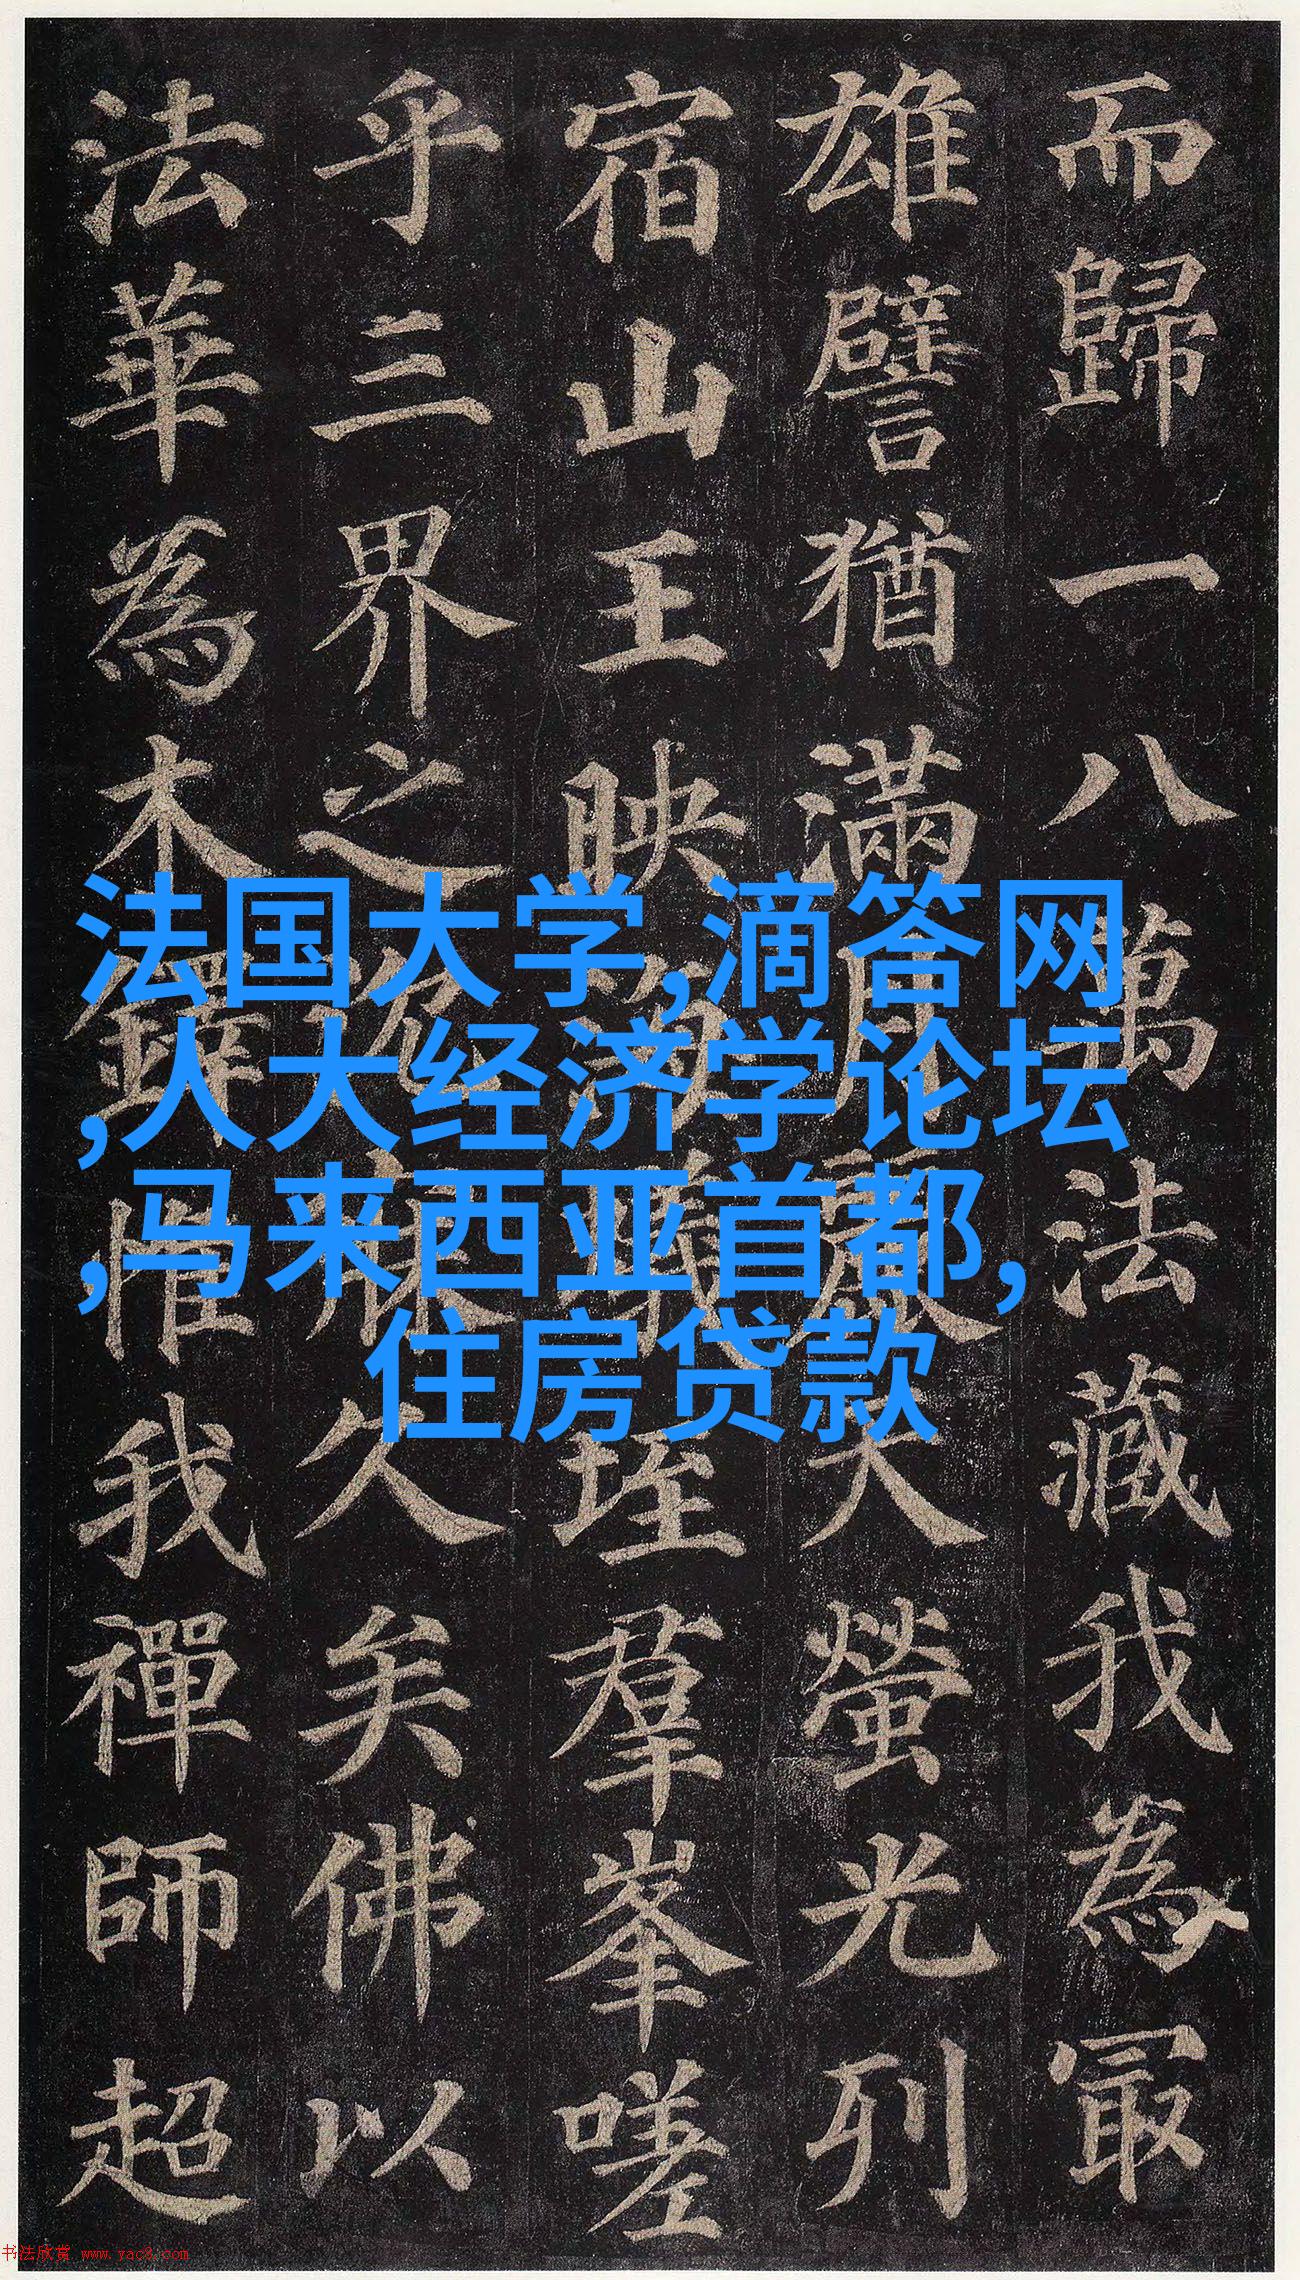 而歸一八萬法藏我為冣
雄譬猶滿月麗天螢光列
宿山王映海蟻垤羣峯嗟
乎三界之沉寐久矣佛以
法華為木鐸惟我禪師超
法国大学,滴答网
,人大经济学论坛
,马来西亚首都,
住房贷款
书法欣赏 www.yac8.com